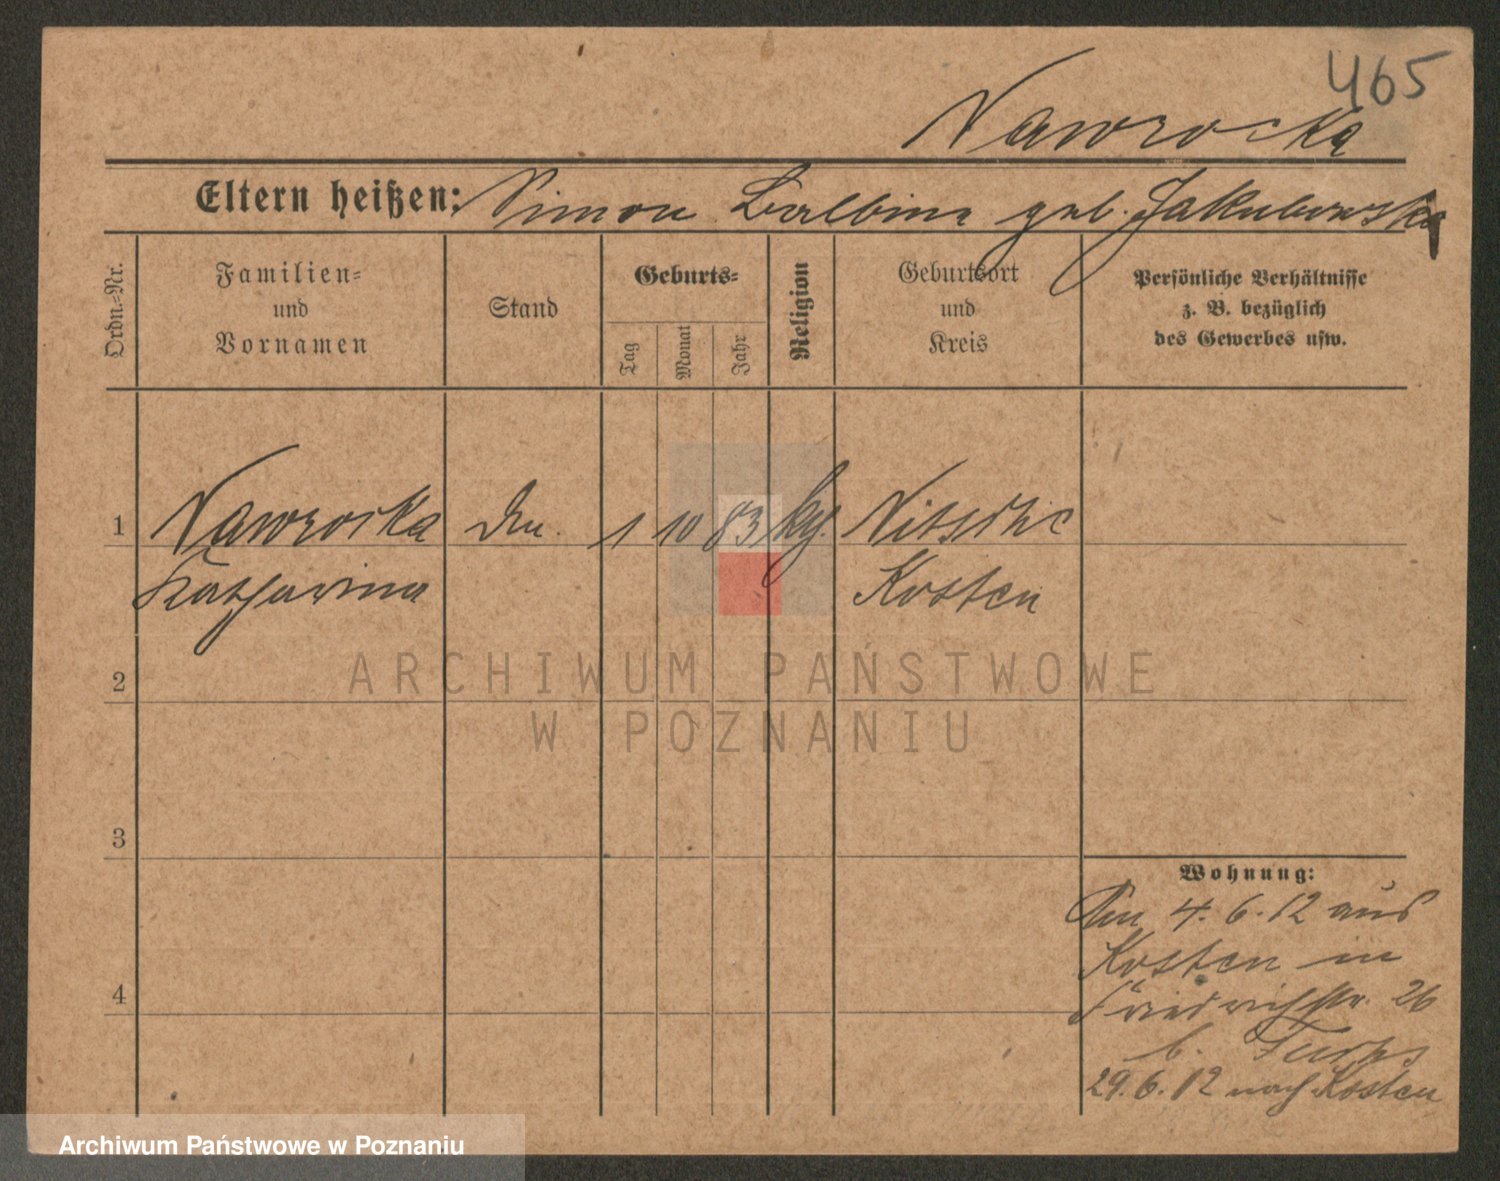 465
Nawrocka
Eltern heißen: Simon Balbina geb. Jakubowska
Ordn.=Nr.
Familien=
und
Vornamen
Stand
Geburts=
Tag
Monat
Jahr
Religion
Geburtsort
und
Kreis
Persönliche Verhältnisse
z. B. bezüglich
des Gewerbes usw.
1 Nawrocka 1 10 83 Nitsche
Katharina Kosten
2
3
4
Wohnung:
4. 6. 12 aus
Kosten in
Friedrichstr. 26
b.
29. 6. 12 nach Kosten
ARCHIWUM PAŃSTWOWE
W POZNANIU
Archiwum Państwowe w Poznaniu